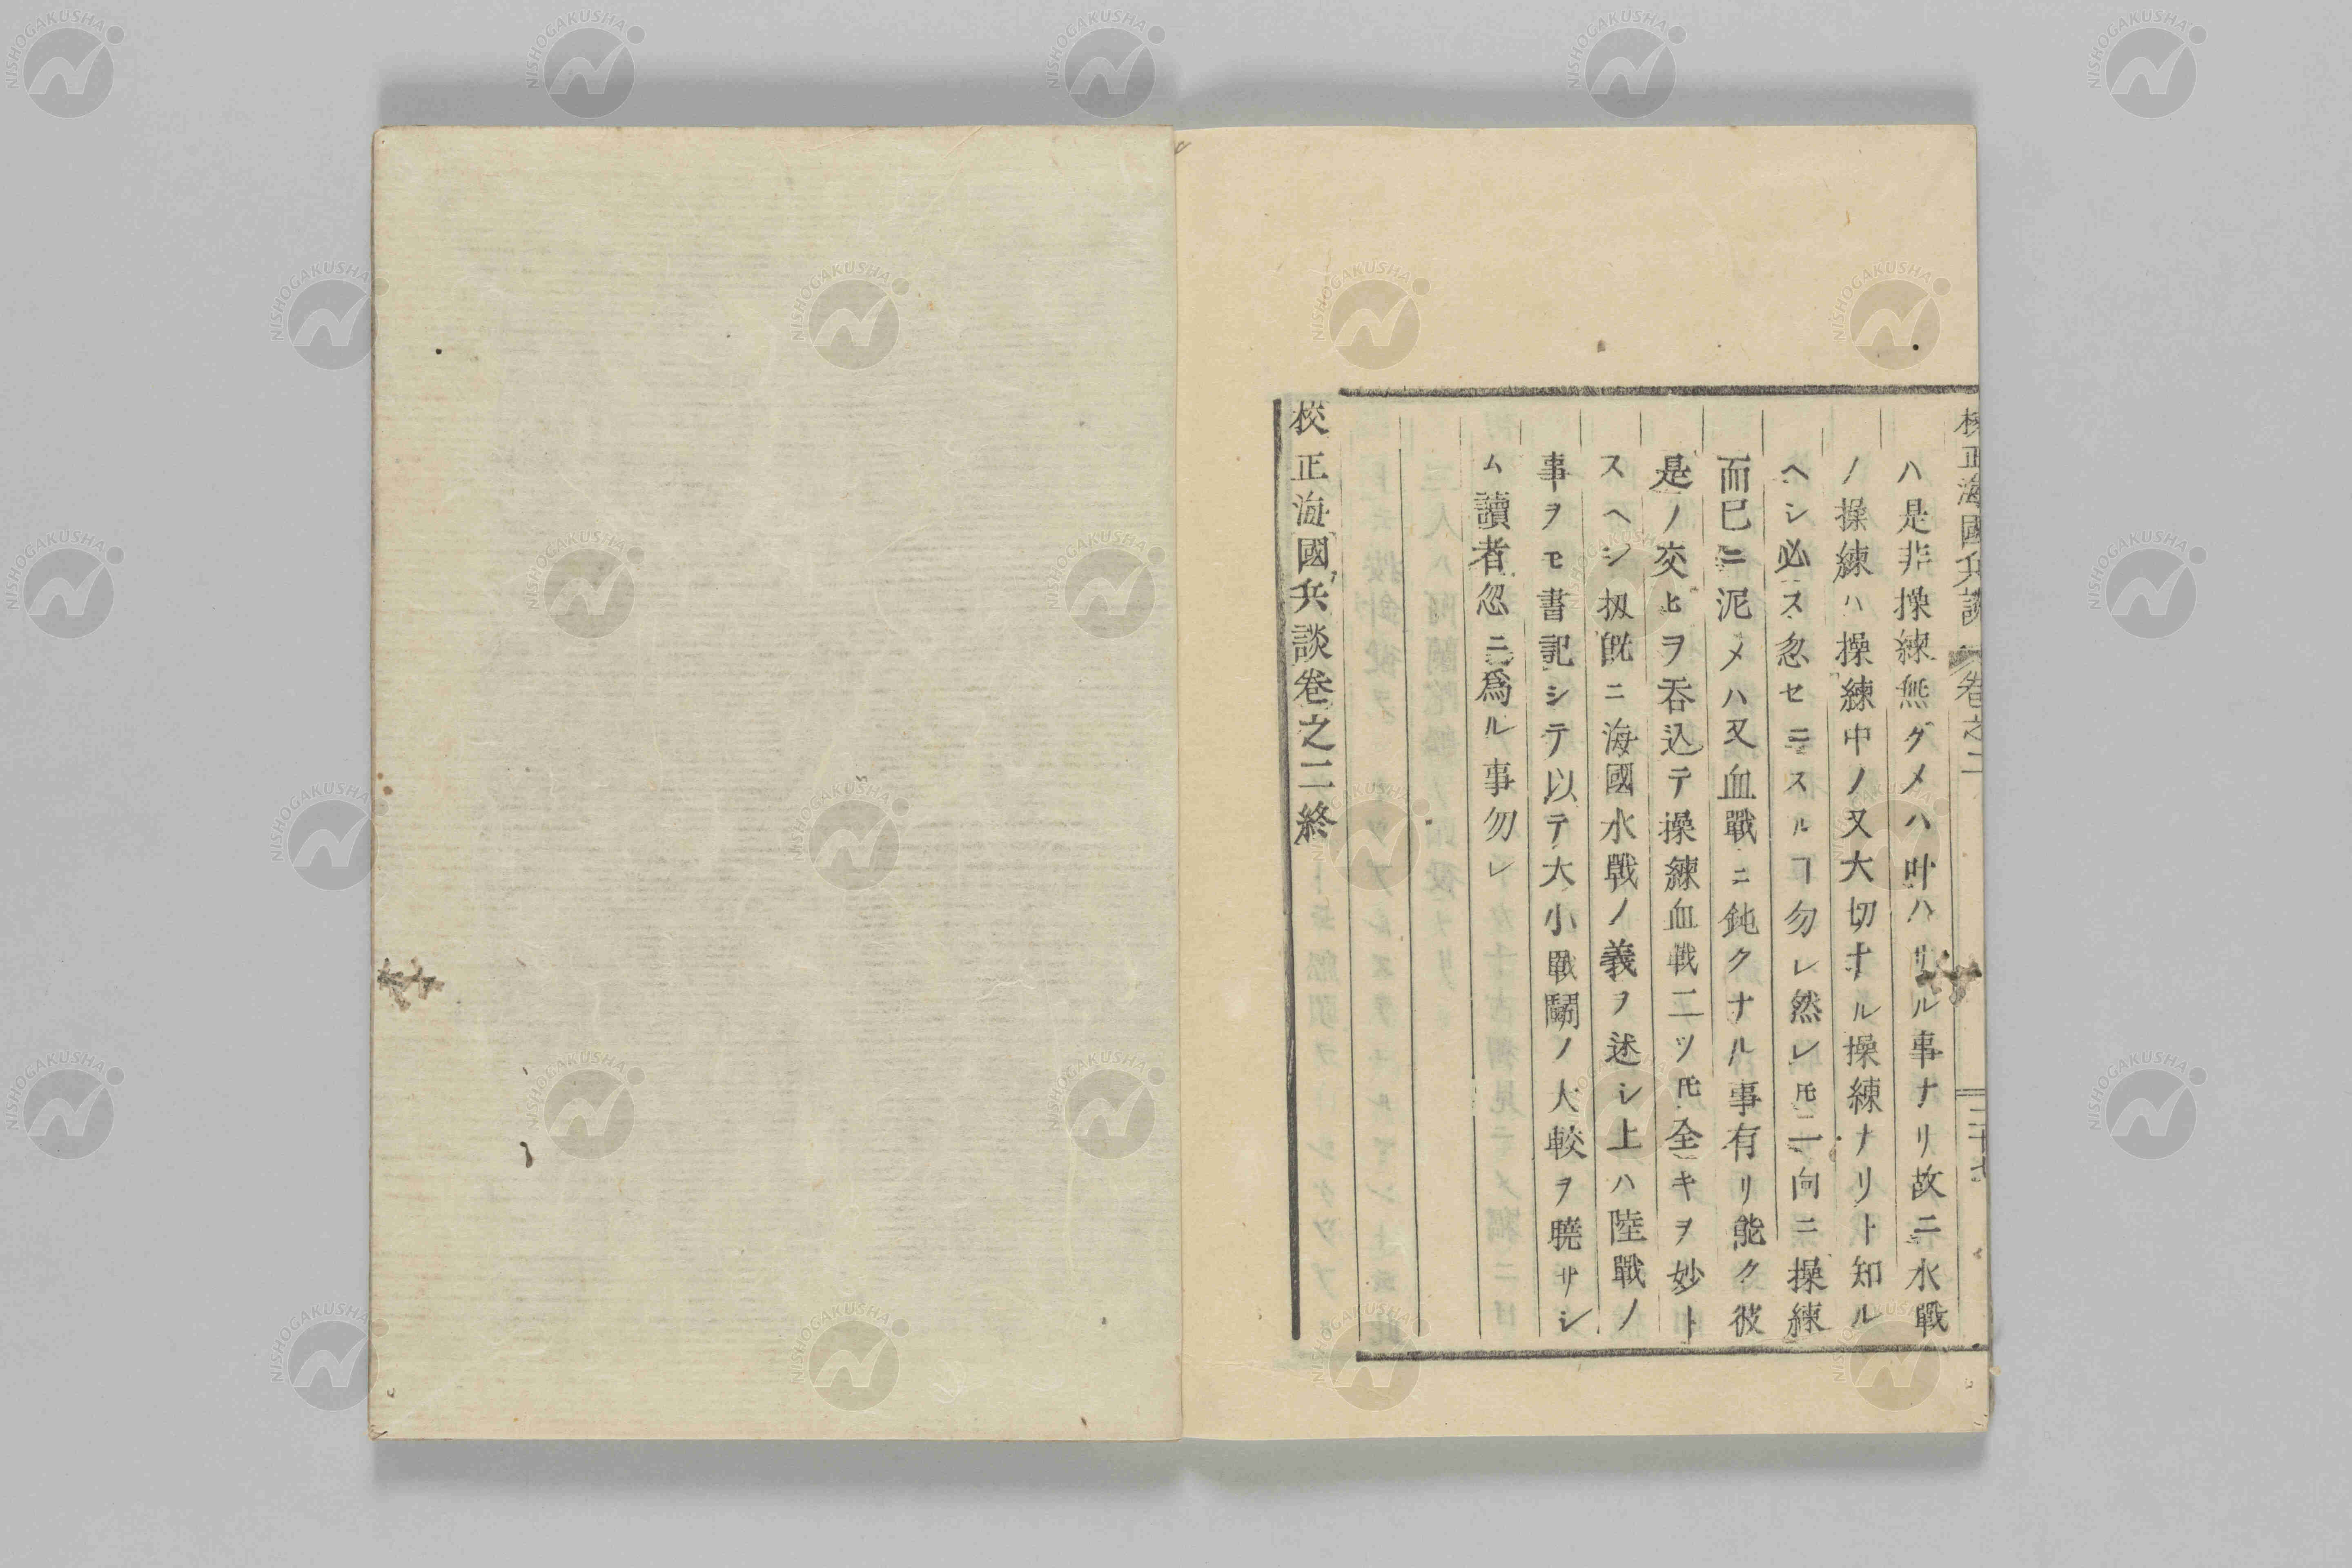 校正海國兵談 卷之二 二十七
ハ是非操練無グメハ叶ハザル事ナリ故ニ水戰
ノ操練ハ操練中ノ又大切ナル操練ナリト知ル
ヘシ必ス忽セニスルヿ勿レ然レ𪜈一向ニ操練
而已ニ泥メハ又血戰ニ鈍クナル事有リ能ク彼
是ノ交ヒヲ呑込テ操練血戰二ツ𪜈全キヲ妙ト
スヘシ扨既ニ海國水戰ノ義ヲ述シ上ハ陸戰ノ
事ヲモ書記シテ以テ大小戰鬪ノ大較ヲ曉サシ
ム讀者忽ニ爲ル事勿レ
校正海國兵談卷之二終
NISHOGAKUSHA